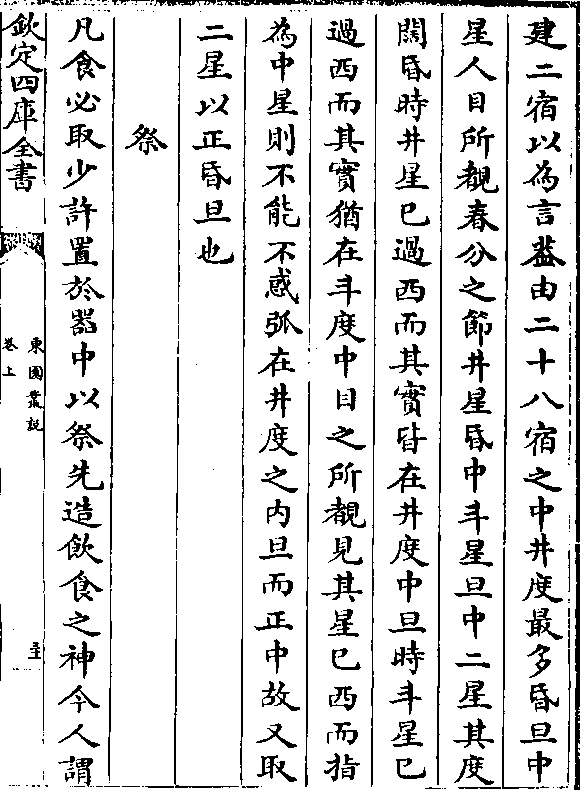 建二宿以為言葢由二十八宿之中井度最多昏旦中
星人目所覩春分之節井星昏中斗星旦中二星其度
闊昏時井星已過西而其實皆在井度中旦時斗星已
過西而其實猶在斗度中目之所覩見其星已西而指
為中星則不能不惑弧在井度之內旦而正中故又取
二星以正昏旦也
祭
凡食必取少許置於器中以祭先造飲食之神今人謂
欽定四庫全書
東園叢説
卷上